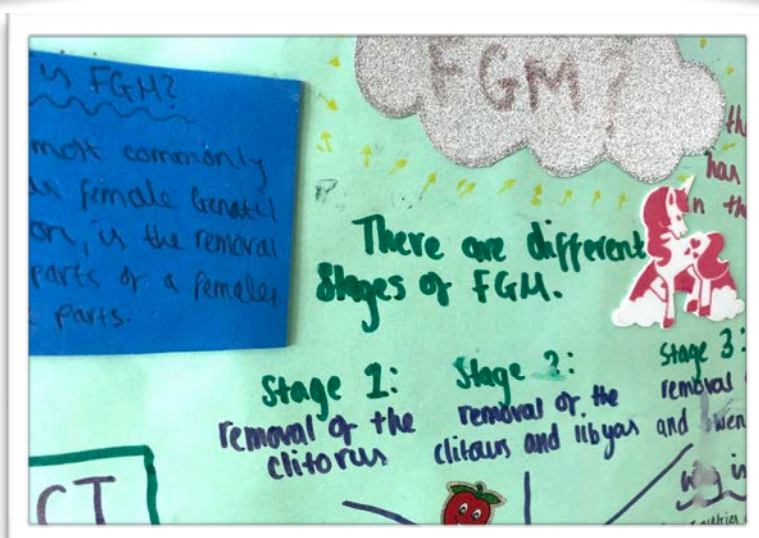 is FGM?
most commonly
female Genatil
on, is the removal
parts of a females
parts.
FGM?
There are different
Stages of FGM.
Stage 1:
removal of the
clitorus
Stage 2:
removal of the
clitous and libyas
Stage 3:
removal
and
is
CT
has